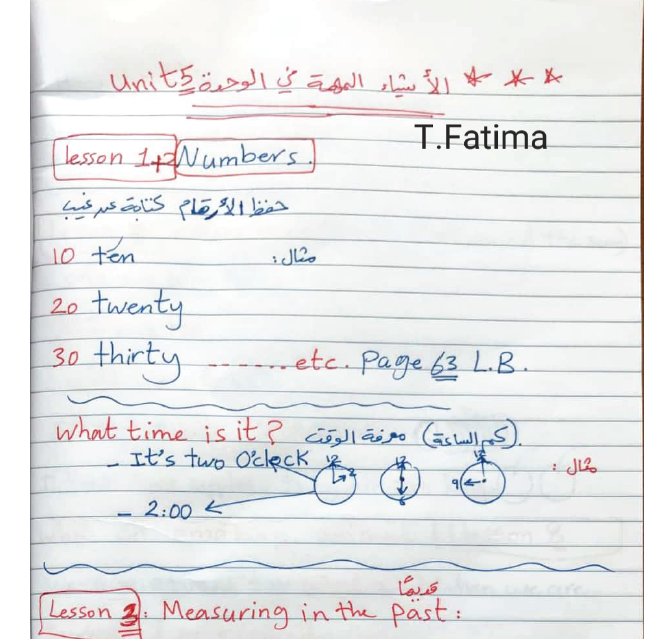 Unit 5 الأشياء المهمة في الوحدة ***
T.Fatima
lesson 1+2 Numbers.
حفظ الأرقام كتابة عن غيب
10 ten مثال:
20 twenty
30 thirty ....... etc. Page 63 L.B.
What time is it? معرفة الوقت (كم الساعة).
- It's two O'clock 12 2 12 6 12 9 مثال:
- 2:00
قديمًا
Lesson 3: Measuring in the past: